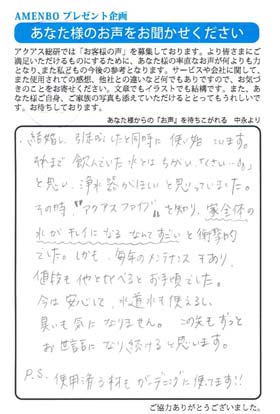 AMENBO プレゼント企画
あなた様のお声をお聞かせください
アクアス総研では「お客様の声」を募集しております。より皆さまにご
満足いただけるものにするために、あなた様の率直なお声が何よりも力
となり、また私どもの今後の参考となります。サービスや会社に関して、
また使用されての感想、他社との違いなど何でもありですので、お気づ
きのことをお寄せください。文章でもイラストでも結構です。また、あ
なた様ご自身、ご家族の写真も添えていただけるととってもうれしいで
す。お待ちしております。
あなた様からの「お声」を待ちこがれる 中永より
・結婚し、引越しと同時に使い始めています。
それまで飲んでいた水とはちがい、くさい…
と思い、浄水器がほしいと思っていました。
その時"アクアスファイブ"を知り、家全体の
水がキレイになるなんてすごいと衝撃的
でした。しかも、毎年のメンテナンスもあり、
値段も他とくらべるとお手頃でした。
今は安心して、水道水も使えるし、
臭いも気になりません。この先もずっと
お世話になり続けると思います。
P.S. 使用済ろ材もガーデニングに使ってます!!
ご協力ありがとうございました。